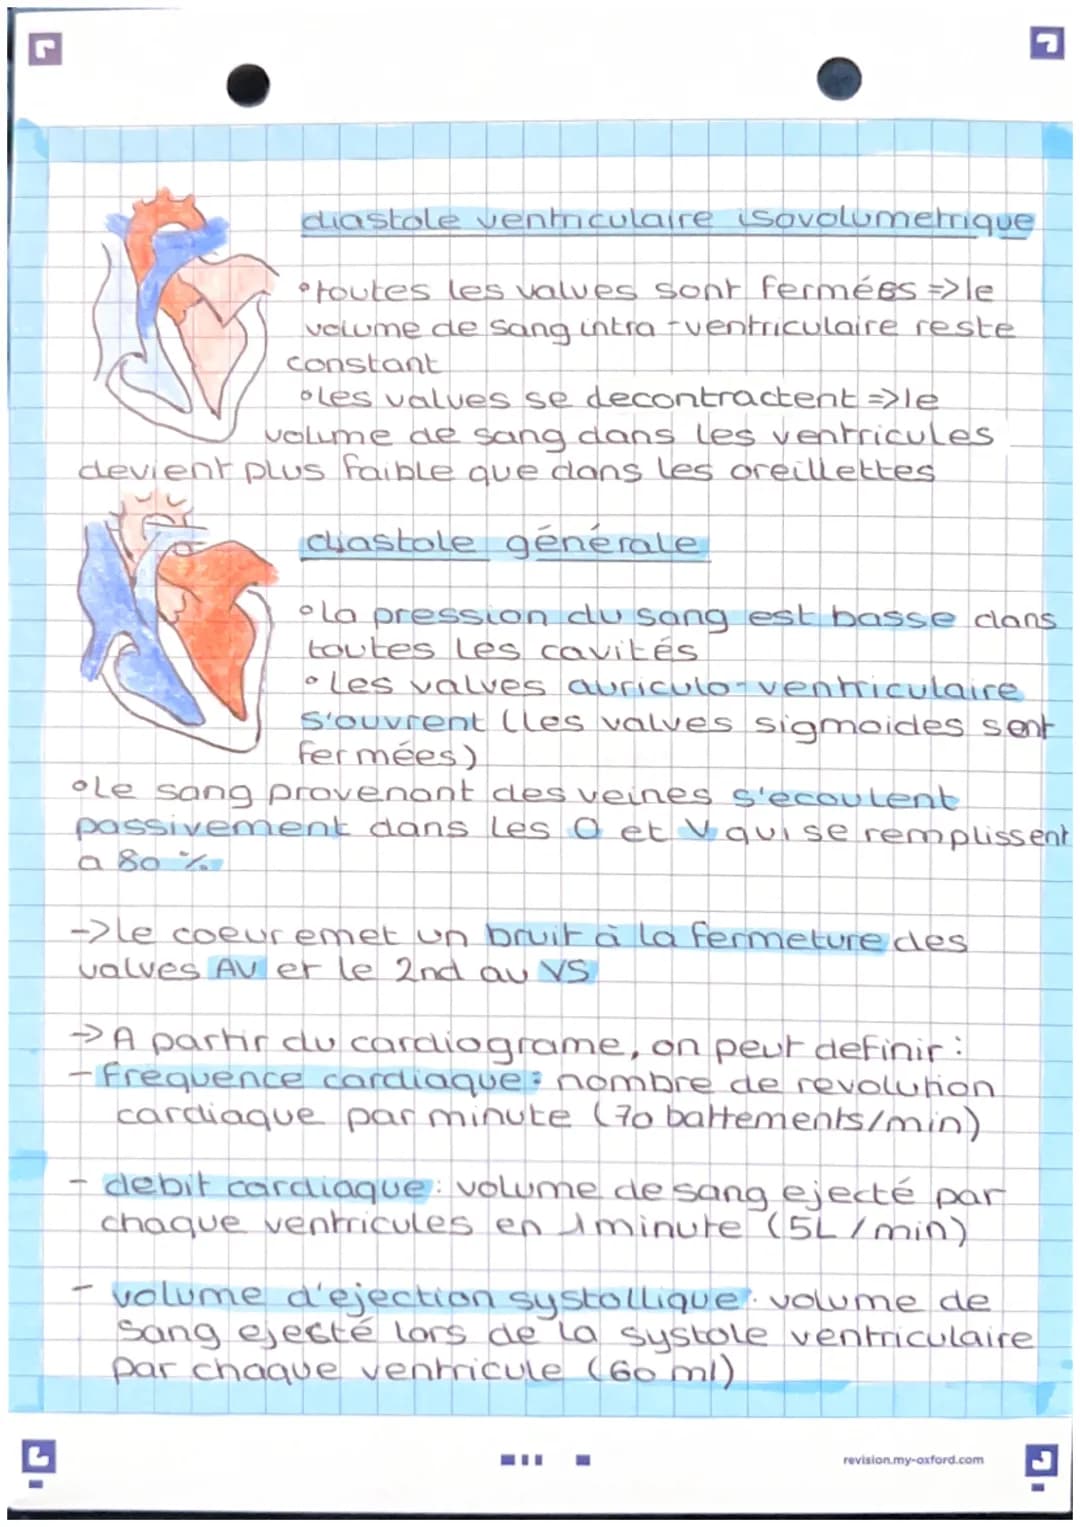 diastole ventriculaire isovolumetrique
•toutes les valves sont fermées => le
volume de sang intra-ventriculaire reste
constant
•Les valves se decontractent => le
volume de sang dans les ventricules
devient plus faible que dans les oreillettes
diastole générale
•la pression du sang est basse dans
toutes les cavités
•Les valves auriculo-ventriculaire
s'ouvrent (les valves sigmoides sont
fermées)
•Le sang provenant des veines s'ecoulent
passivement dans les O et V qui se remplissent
a 80 %
->le coeur emet un bruit à la fermeture des
valves AV et le 2nd au VS
-> A partir du cardiograme, on peut definir :
- frequence cardiaque : nombre de revolution
cardiaque par minute (70 battements/min)
- debit cardiaque : volume de sang ejecté par
chaque ventricules en 1 minute (5L/min)
- volume d'ejection systollique : volume de
sang ejecté lors de la systole ventriculaire
par chaque ventricule (60 ml)
revision.my-oxford.com